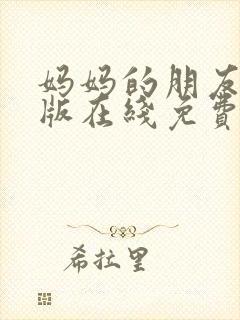 妈妈的朋友
版在綫免費
希拉里